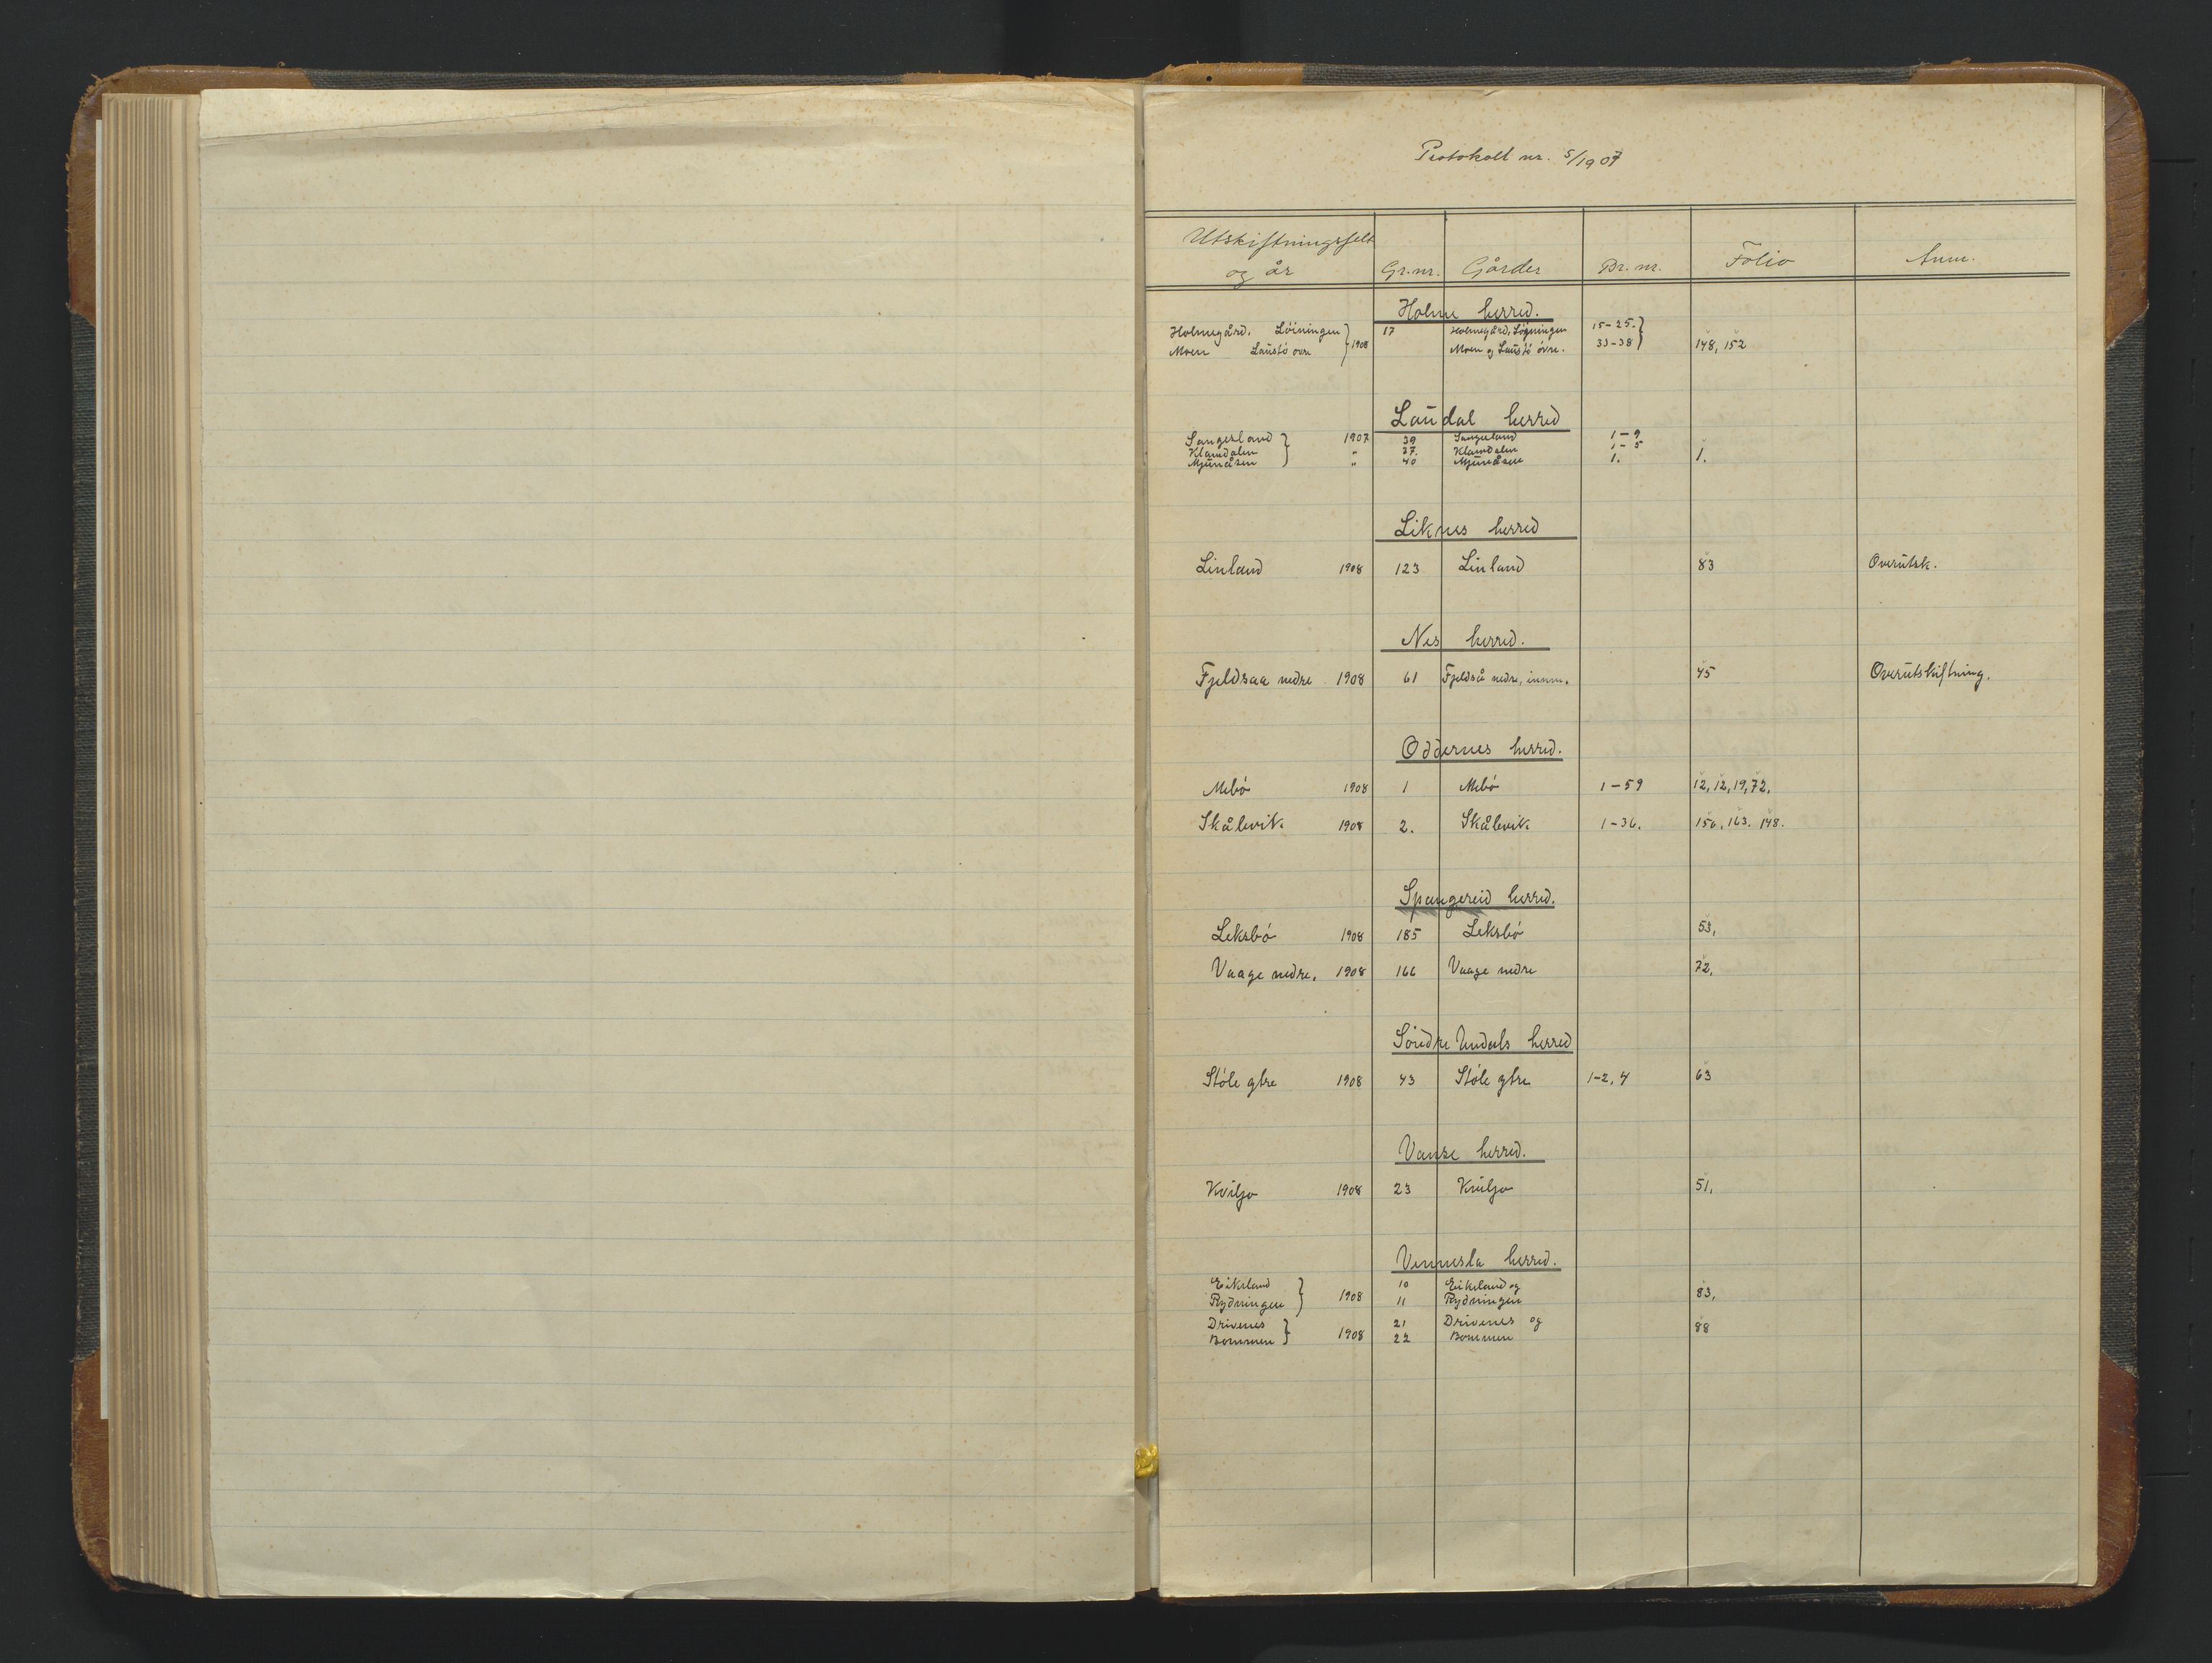 Protokoll nr. 5/1907
Utskiftningsfelt og år Gr.nr. Gårder Br. nr. Folio Anm.
Holme herred.
Holmegård, Löiningen 17 Holmegård, Löiningen 15-25.
Moen Laustö övre 1908 Moen og Laustö övre. 33-38 148, 152
Laudal herred
Sangesland 1907 39 Sangesland 1-9
Klamdalen " 37. Klamdalen 1-5
Mjunåsen " 40 Mjunåsen 1. 1.
Liknes herred
Linland 1908 123 Linland 83 Overutsk.
Nes herred.
Fjeldsaa nedre 1908 61 Fjeldså nedre, innm. 45 Overutskiftning.
Oddernes herred.
Mebö 1908 1 Mebö 1-59 12, 12, 19, 72.
Skålevik 1908 2. Skålevik 1-36. 156, 163. 148.
Spangereid herred.
Leksbö 1908 185 Leksbö 53,
Vaage nedre. 1908 166 Vaage nedre 72.
Söndre Undals herred
Stöle ytre 1908 43 Stöle ytre 1-2, 4 63
Vanse herred.
Kviljo 1908 23 Kviljo 51,
Vennesla herred.
Eikeland 10 Eikeland og
Rydningen 1908 11 Rydningen 83,
Drivenes 21 Drivenes og
Bommen 1908 22 Bommen 88